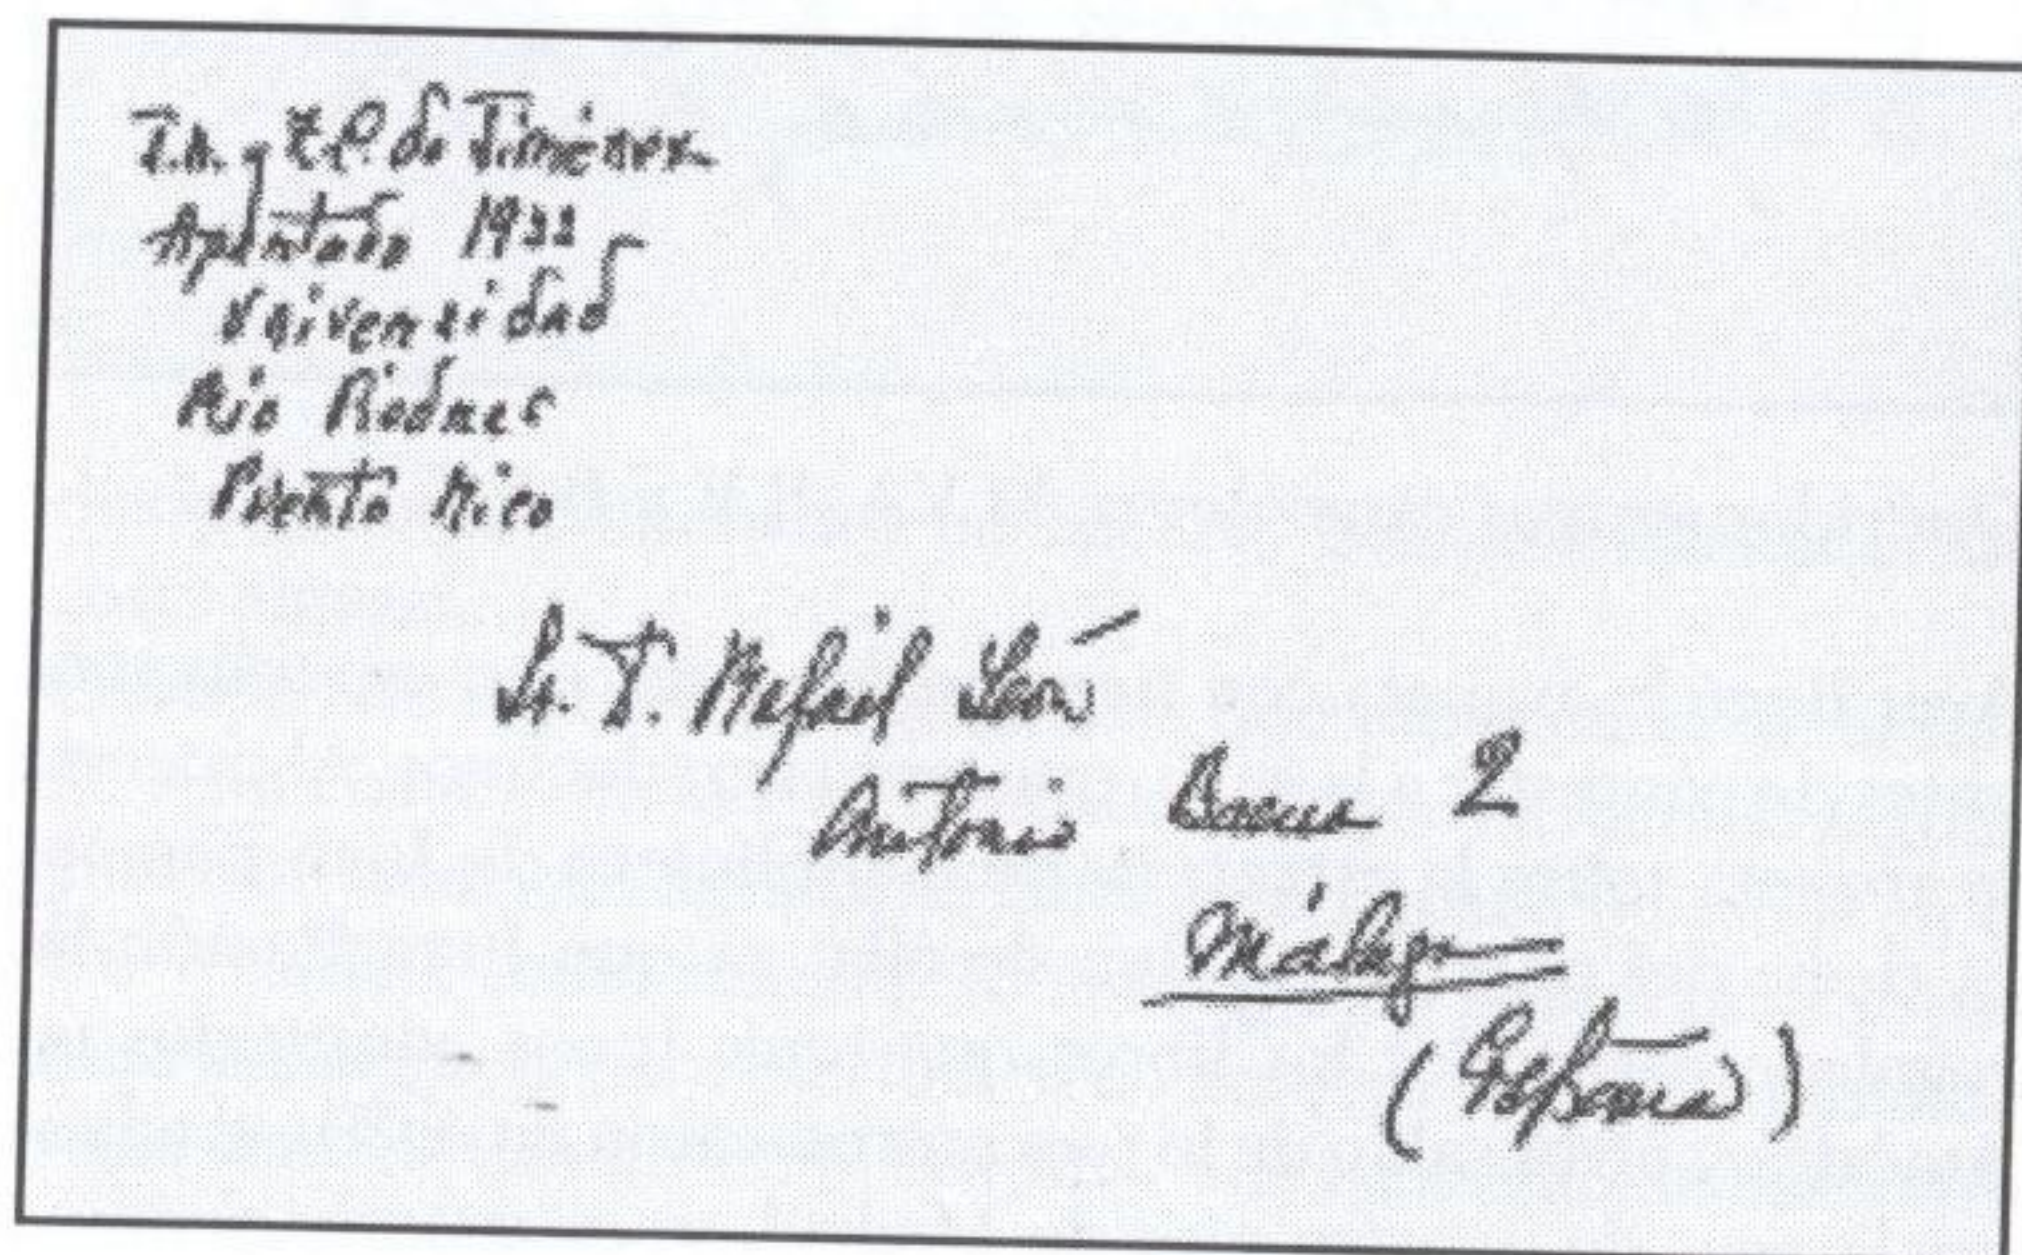 J.R. y Z.C. de Jiménez
Apartado 1933
Universidad
Río Piedras
Puerto Rico
Sr. D. Rafael León
Antonio Baena 2
Málaga
(España)